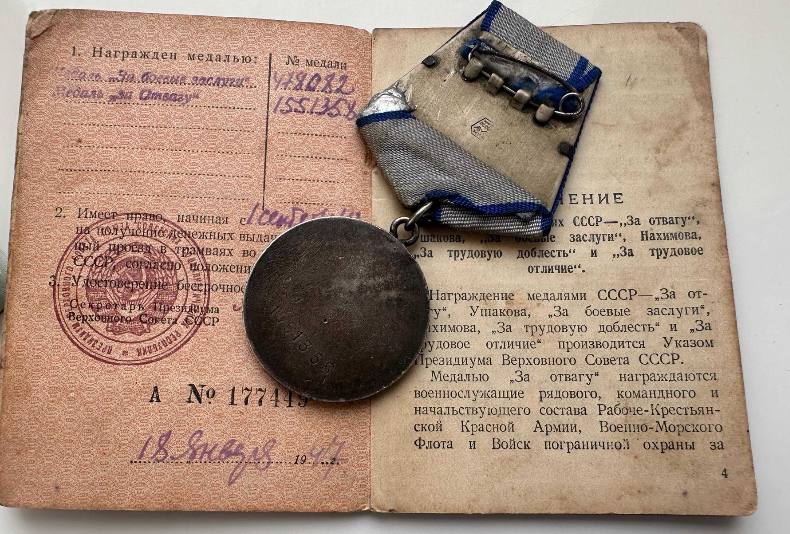 1. Награжден медалью:
№ медали
Медаль „За боевые заслуги"
478082
Медаль „За Отвагу"
2. Имеет право, начиная с
на получение денежных выда
ный проезд в трамваях во
СССР, согласно положени
3. Удостоверение бессрочное
Секретарь Президиума
Верховного Совета СССР
А № 177449
18 января 1947 г.
НИЕ
СССР—„За отвагу",
Ушакова, „За боевые заслуги", Нахимова,
„За трудовую доблесть" и „За трудовое
отличие".
Награждение медалями СССР—„За от-
вагу", Ушакова, „За боевые заслуги",
Нахимова, „За трудовую доблесть" и „За
трудовое отличие" производится Указом
Президиума Верховного Совета СССР.
Медалью „За отвагу" награждаются
военнослужащие рядового, командного и
начальствующего состава Рабоче-Крестьян-
ской Красной Армии, Военно-Морского
Флота и Войск пограничной охраны за
4